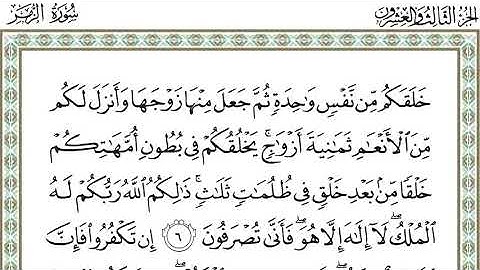 الجزء الثالث والعشرون سورة الزمر
خَلَقَكُم مِّن نَّفْسٍ وَٰحِدَةٍ ثُمَّ جَعَلَ مِنْهَا زَوْجَهَا وَأَنزَلَ لَكُم
مِّنَ ٱلْأَنْعَٰمِ ثَمَٰنِيَةَ أَزْوَٰجٍ ۚ يَخْلُقُكُمْ فِى بُطُونِ أُمَّهَٰتِكُمْ
خَلْقًا مِّنۢ بَعْدِ خَلْقٍ فِى ظُلُمَٰتٍ ثَلَٰثٍ ۚ ذَٰلِكُمُ ٱللَّهُ رَبُّكُمْ لَهُ
ٱلْمُلْكُ ۖ لَآ إِلَٰهَ إِلَّا هُوَ ۖ فَأَنَّىٰ تُصْرَفُونَ ٦ إِن تَكْفُرُوا۟ فَإِنَّ